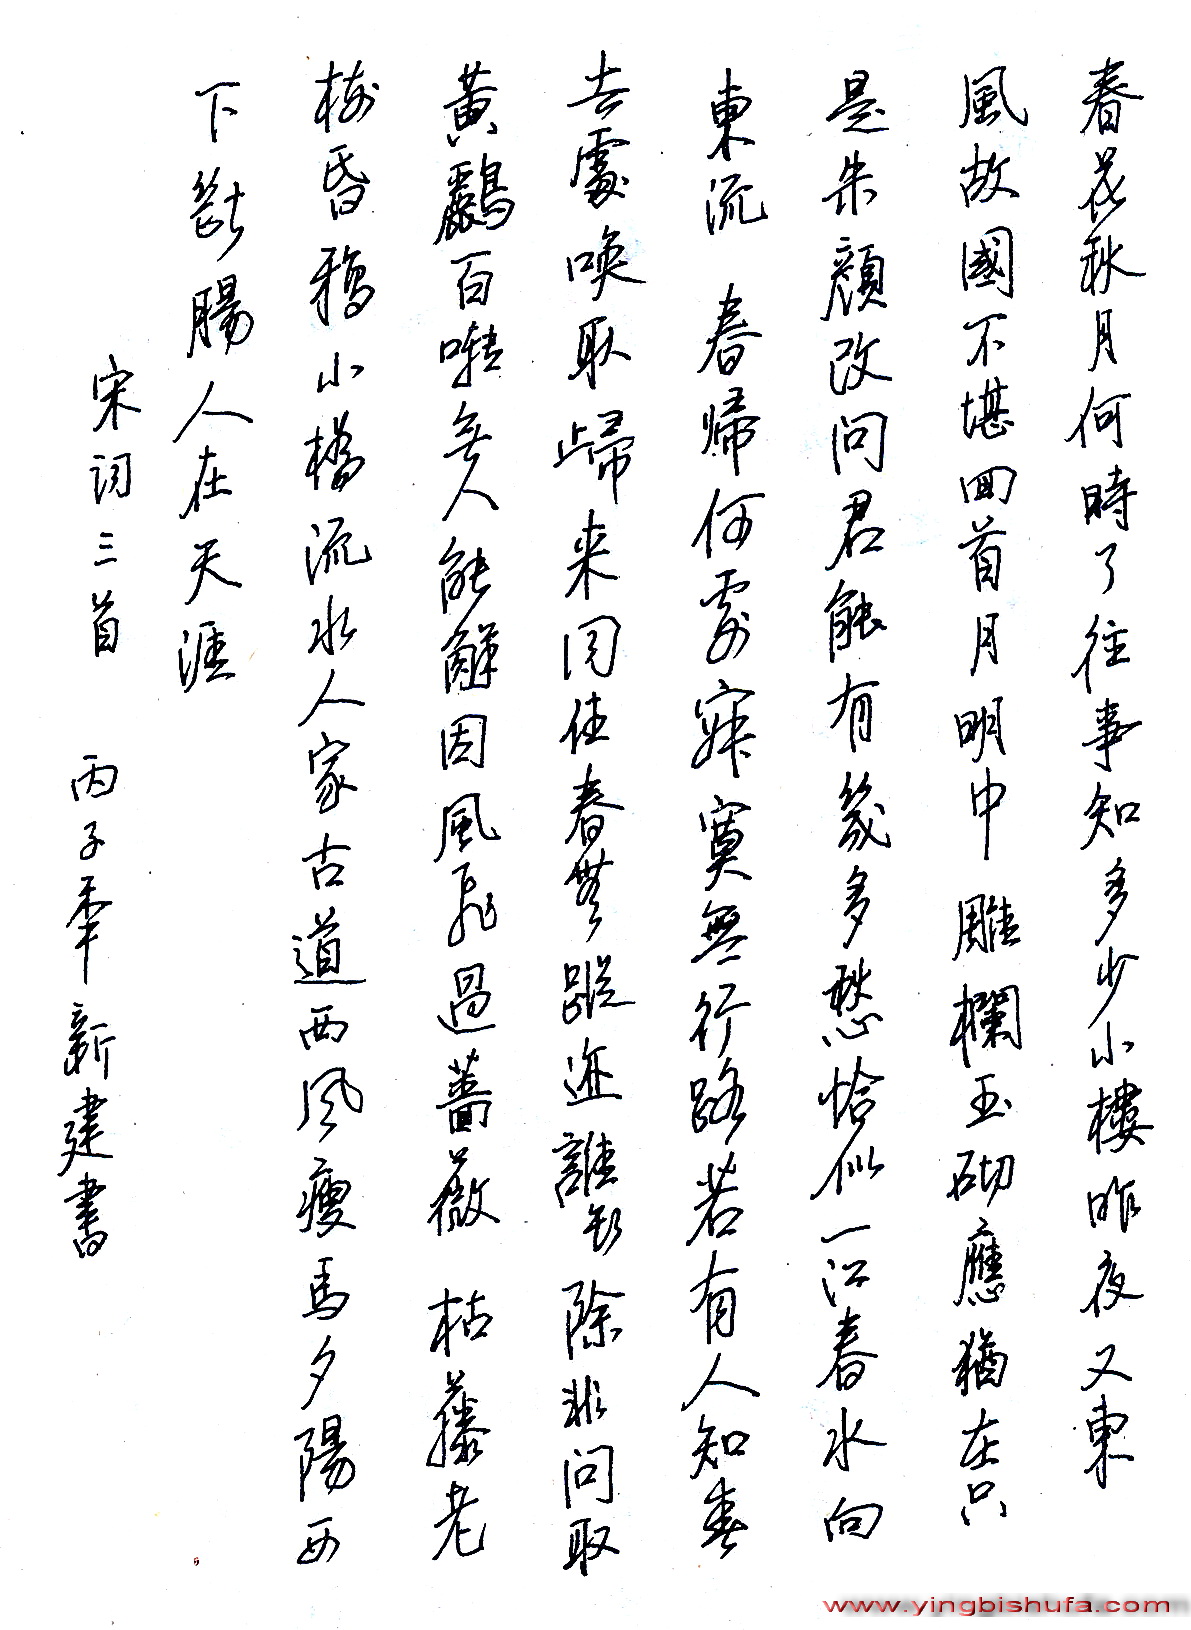 春花秋月何時了往事知多少小樓昨夜又東
風故國不堪囬首月明中 雕欄玉砌應猶在只
是朱顔改問君能有幾多愁恰似一江春水向
東流 春歸何處寂寞無行路若有人知春
去處喚取歸来同住春無蹤迹誰知除非問取
黃鸝百囀無人能解因風飛過薔薇 枯藤老
樹昏鴉小橋流水人家古道西风瘦馬夕陽西
下斷腸人在天涯
宋词三首 丙子年新建書
www.yingbishufa.com